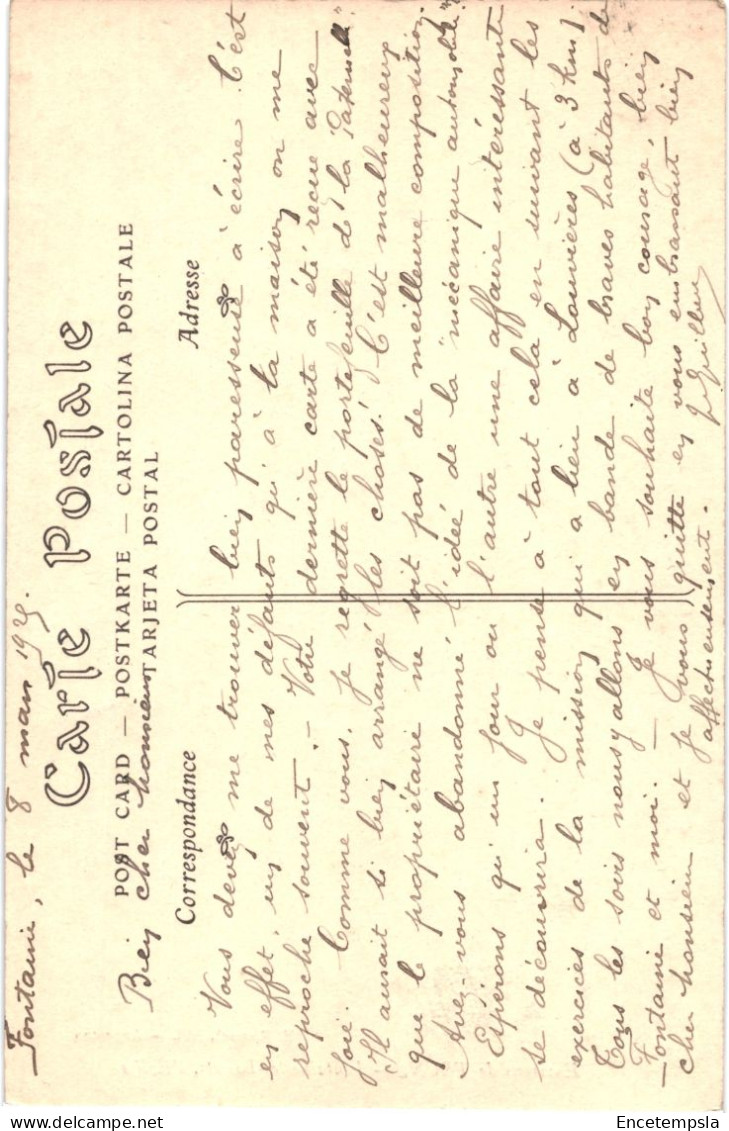 Fontaine, le 8 mars 1925.
Carte Postale
POST CARD — POSTKARTE — CARTOLINA POSTALE
TARJETA POSTAL
Bien cher monsieur
Correspondance
Adresse
Vous devez me trouver bien paresseuse à écrire. C'est
en effet, un de mes défauts qu'à la maison on me
reproche souvent. — Votre dernière carte a été reçue avec
joie. Comme vous, je regrette le portefeuille de "la Paternelle".
Il aurait si bien arrangé les choses! C'est malheureux
que le propriétaire ne soit pas de meilleure composition.
Avez-vous abandonné l'idée de la "mécanique automobile".
Espérons qu'un jour ou l'autre une affaire intéressante
se découvrira. Je pense à tout cela en suivant les
exercices de la mission qui a lieu à Louvières (à 3 km).
Tous les soirs nous y allons en bande de braves habitants de
Fontaine et moi. — Je vous souhaite bon courage, bien
cher monsieur et je vous quitte en vous embrassant bien
affectueusement.
Encetempsla